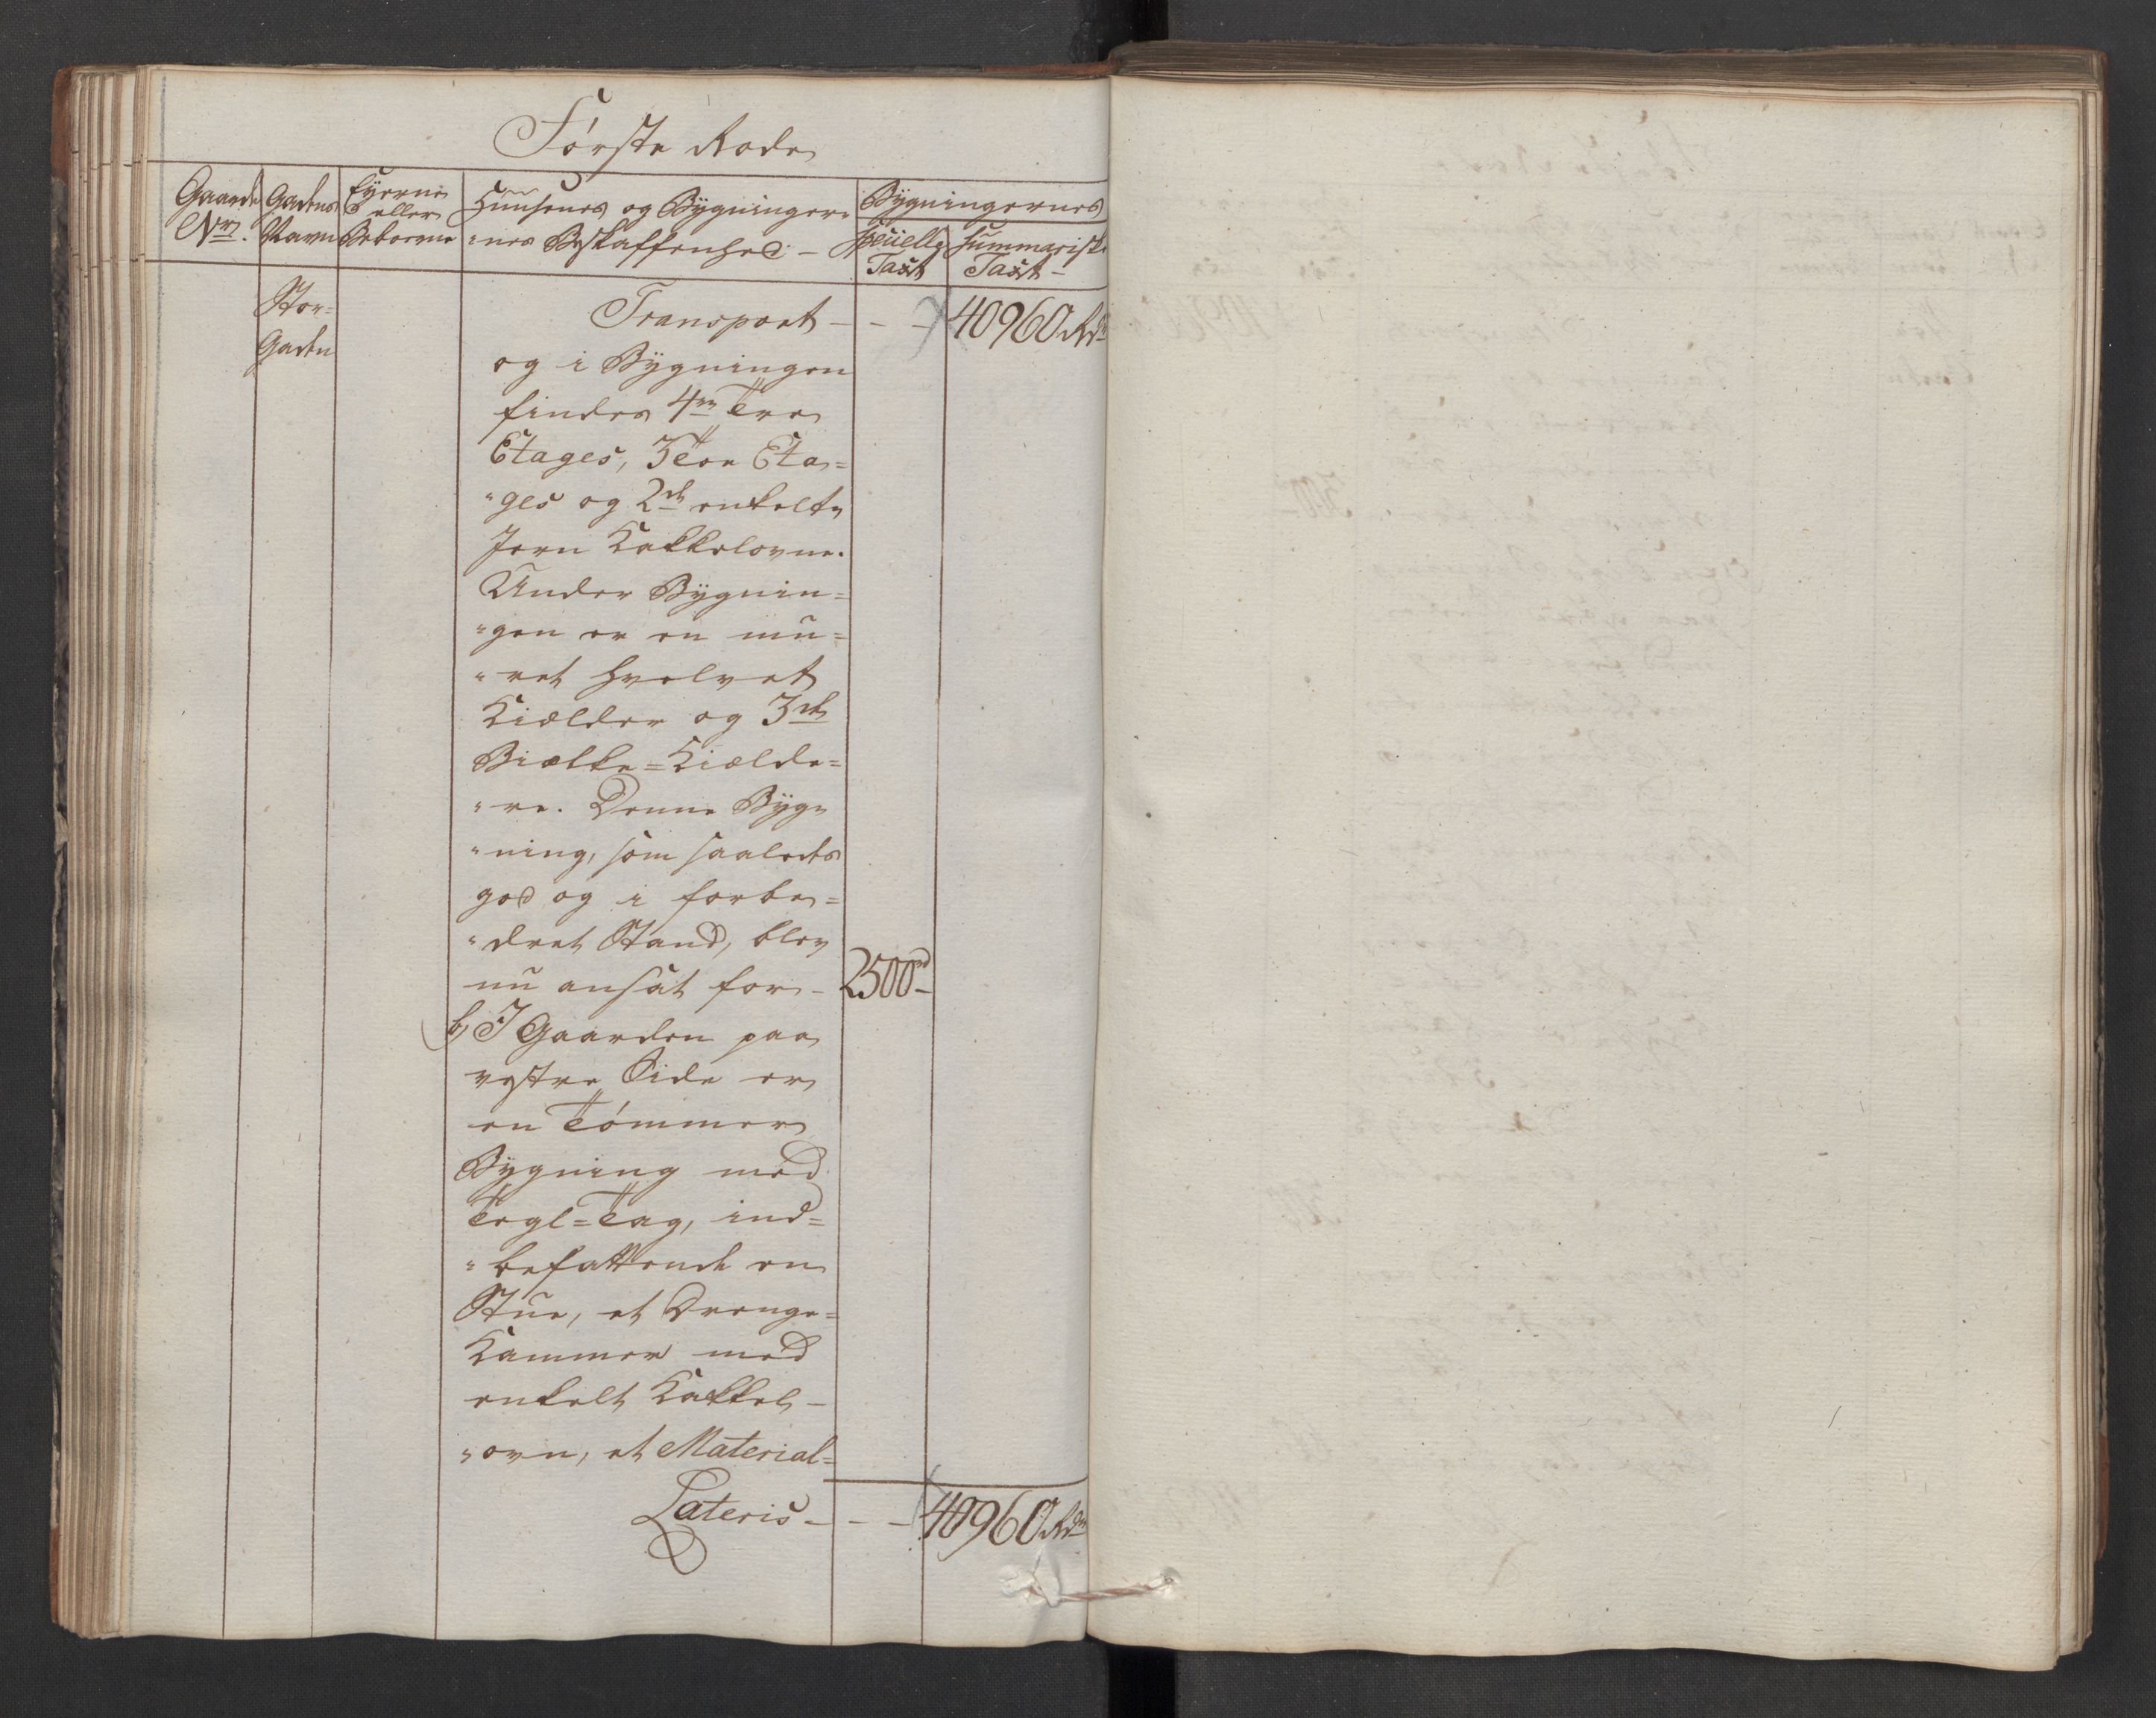 Første Rode
Gaards Gadens Eyerne Huusenes og Bygninger= Bygningernes
eller
No. Navn Beboerne =nes Beskaffenhed - specielle summariske
Taxt Taxt -
Stor= Transport - - - 40960 Rd
Gaden
og i Bygningen
findes 4re Tre
Etages, 3 Toe Eta=
=ges og 2de enkelte
Jern Kakkelovne.
Under Bygnin=
=gen er en mu=
=ret hvelvet
Kiælder og 3de
Biælke=Kiælde=
=re. Denne Byg=
=ning, som saaledes
god og i forbe=
=dret Stand, blev
nu ansat for - 2500rd
b, I Gaarden paa
vestre Side er
en Tømmer
Bygning med
Tegl=Tag, ind=
=befattende en
Stue, et Drenge=
Kammer med
enkelt Kakkel-
=ovn, et Material=
Lateris - - - 40960 Rd